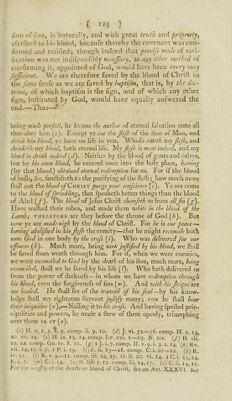 [ 125 ]
sion of sins, is naturally, and with great truth and propriety,
ascribed to his blood, because thereby the covenant was con-
firmed and ratified; though indeed that precise mode of rati-
fication was not indispensibly necessary, as any other method of
confirming it, appointed of God, would have been every way
sufficient. We are therefore saved by the blood of Christ in
the same sense as we are saved by baptism, that is, by the doc-
trine, of which baptism is the sign, and of which any other
sign, instituted by God, would have equally answered the
end.—Thus—
being made perfect, he became the author of eternal salvation unto all
that obey him (c). Except ye eat the flesh of the Son of Man, and
drink his blood, ye have no life in you. Whoso eateth my flesh, and
drinketh my blood, hath eternal life. My flesh is meat indeed, and my
blood is drink indeed (d). Neither by the blood of goats and calves,
but by his own blood, he entered once into the holy place, having
(by that blood) obtained eternal redemption for us. For if the blood
of bulls, &c. sanctifieth to the purifying of the flesh; how much more
shall not the blood of CHRIST purge your conscience (e). Ye are come
to the blood of sprinkling, that speaketh better things than the blood
of Abel (f). The blood of Jesus Christ cleanseth us from all sin (g).
Have washed their robes, and made them white in the blood of the
Lamb; THEREFORE are they before the throne of God (h). But
now ye are made nigh by the blood of Christ. For he is our peace—
having abolished in his flesh the enmity—that he might reconcile both
unto God in one body by the cross (i). Who was delivered for our
offences (k). Much more, being now justified by his blood, we shall
be saved from wrath through him. For if, when we were enemies,
we were reconciled to God by the death of his Son, much more, being
reconciled, shall we be saved by his life (l). Who hath delivered us
from the power of darkness—in whom we have redemption through
his blood, even the forgiveness of sins (m). And with his stripes are
we healed. He shall see of the travail of his soul—by his know-
ledge shall my righteous servant justify many; even he shall bear
their iniquities (n).—Nailing it to his cross. And having spoiled prin-
cipalities and powers, he made a shew of them openly, triumphing
over them in it (o).